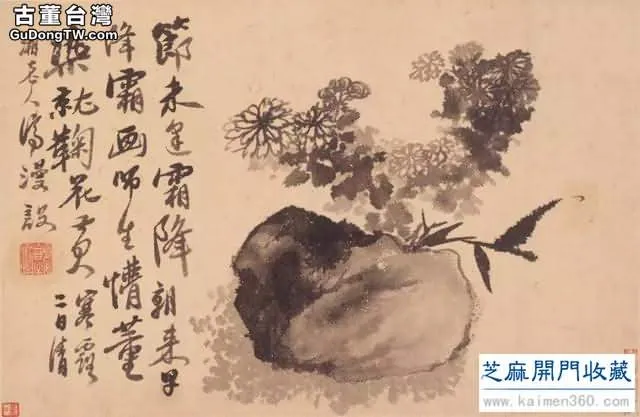 古董台灣
GuDongTW.com
節未逢霜降朝来早
降霜画师生懵董
就鞠花黄
寒露
二日清
湘老人濟漫設
芝麻開門收藏
www.kaimen360.com